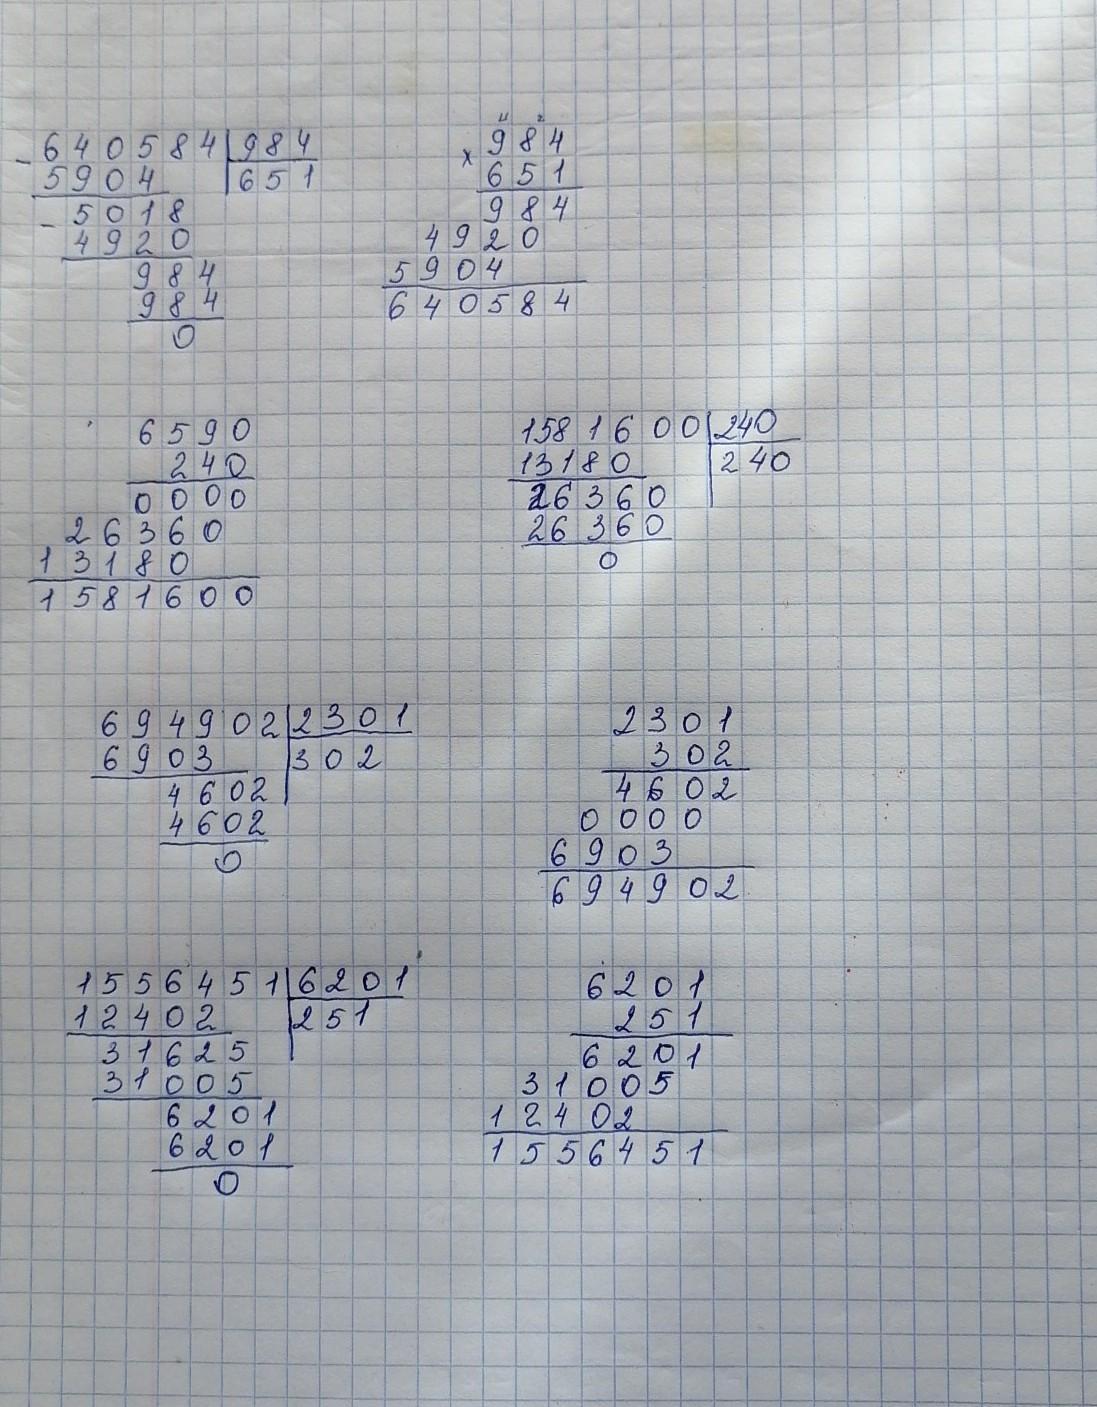 640584 984
- 5904 651
5018
- 4920
984
984
0
984
x 651
984
4920
5904
640584
6590
240
0000
26360
13180
1581600
1581600 240
13180 240
26360
26360
0
694902 2301
6903 302
4602
4602
0
2301
302
4602
0000
6903
694902
1556451 6201
12402 251
31625
31005
6201
6201
0
6201
251
6201
31005
12402
1556451